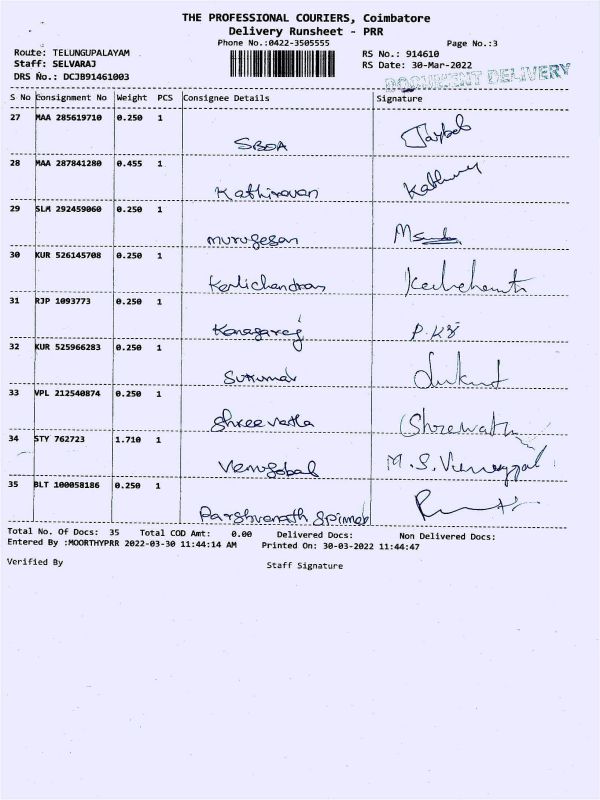 THE PROFESSIONAL COURIERS, Coimbatore
Delivery Runsheet - PRR
Phone No.:0422-3505555
Page No.:3
Route: TELUNGUPALAYAM
RS No.: 914610
Staff: SELVARAJ
RS Date: 30-Mar-2022
DRS No.: DCJB91461003
DOCUMENT DELIVERY
S No Consignment No Weight PCS Consignee Details Signature
27 MAA 285619710 0.250 1
SBOA
28 MAA 287841280 0.455 1
Kathiravan
29 SLM 292459060 0.250 1
murugesan
30 KUR 526145708 0.250 1
31 RJP 1093773 0.250 1
Kanagaraj
32 KUR 525966283 0.250 1
Sukumar
33 VPL 212540874 0.250 1
34 STY 762723 1.710 1
Venugobal M.S.Venugopal
35 BLT 100058186 0.250 1
Parshvanath
Total No. Of Docs: 35 Total COD Amt: 0.00 Delivered Docs: Non Delivered Docs:
Entered By :MOORTHYPRR 2022-03-30 11:44:14 AM Printed On: 30-03-2022 11:44:47
Verified By
Staff Signature